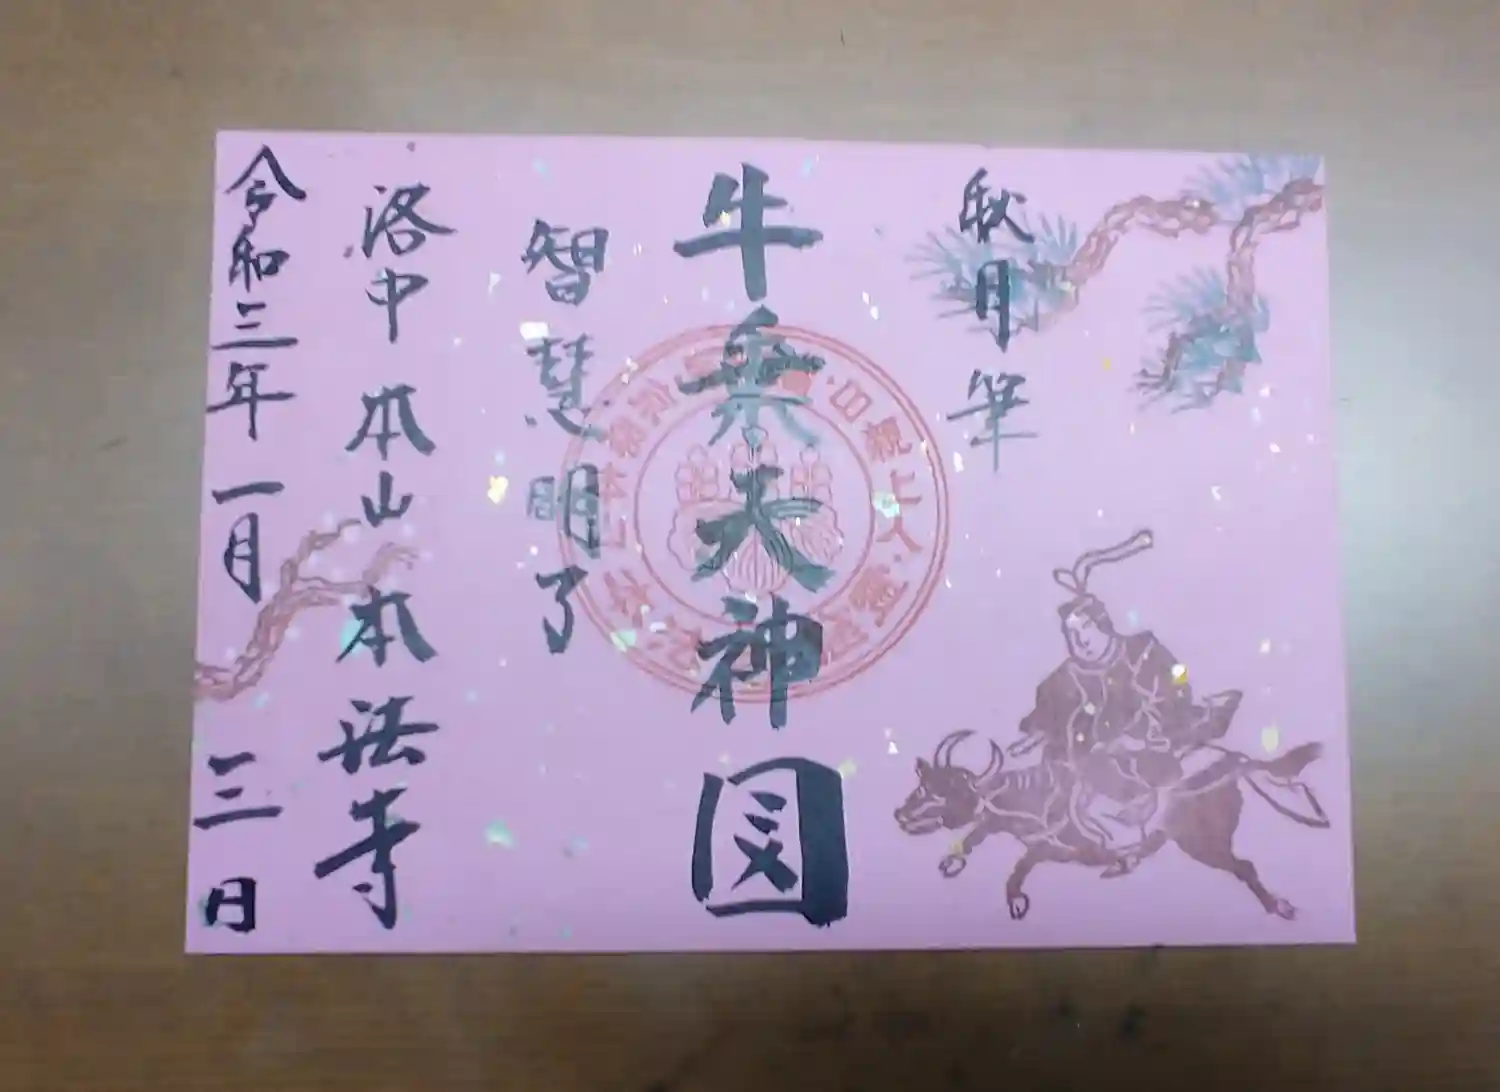 秋月筆
牛乗天神図
智慧明了
洛中 本山 本法寺
令和三年一月三日
日親上人